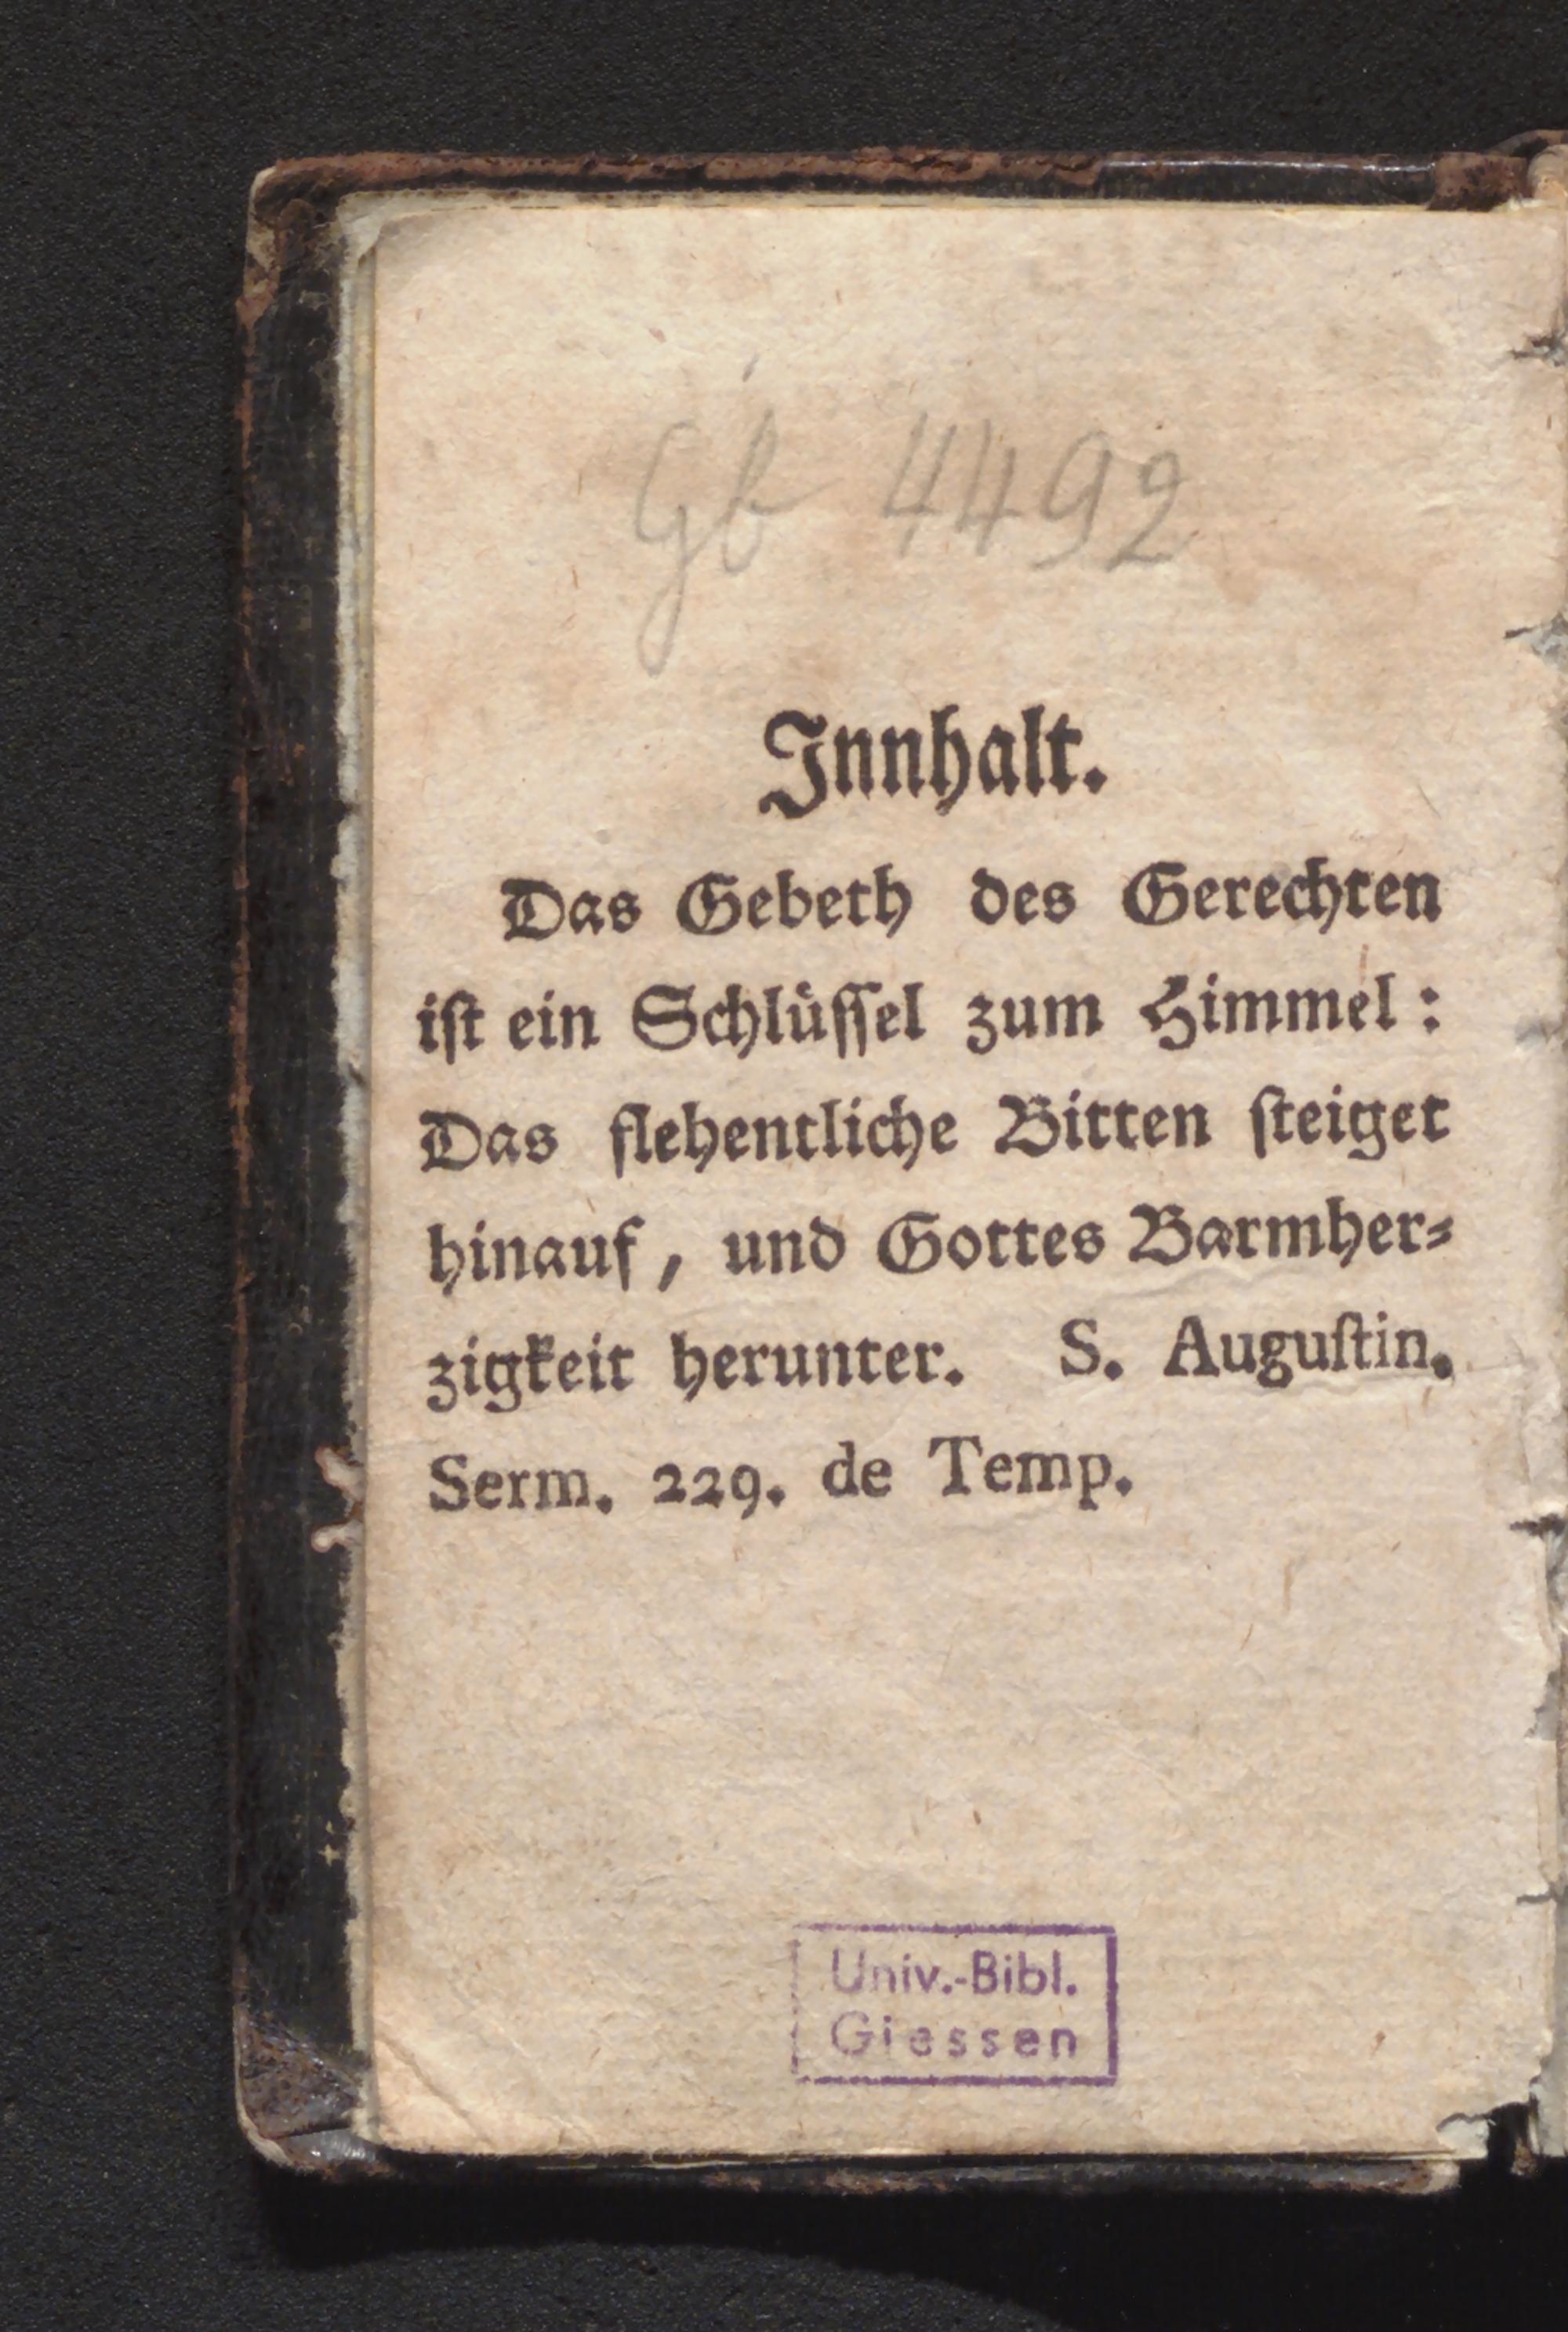 Gb 4492
Innhalt.
Das Gebeth des Gerechten
iſt ein Schlüſſel zum Himmel:
Das flehentliche Bitten ſteiget
hinauf, und Gottes Barmher⸗
zigkeit herunter. S. Auguſtin.
Serm. 229. de Temp.
Univ.-Bibl.
Giessen